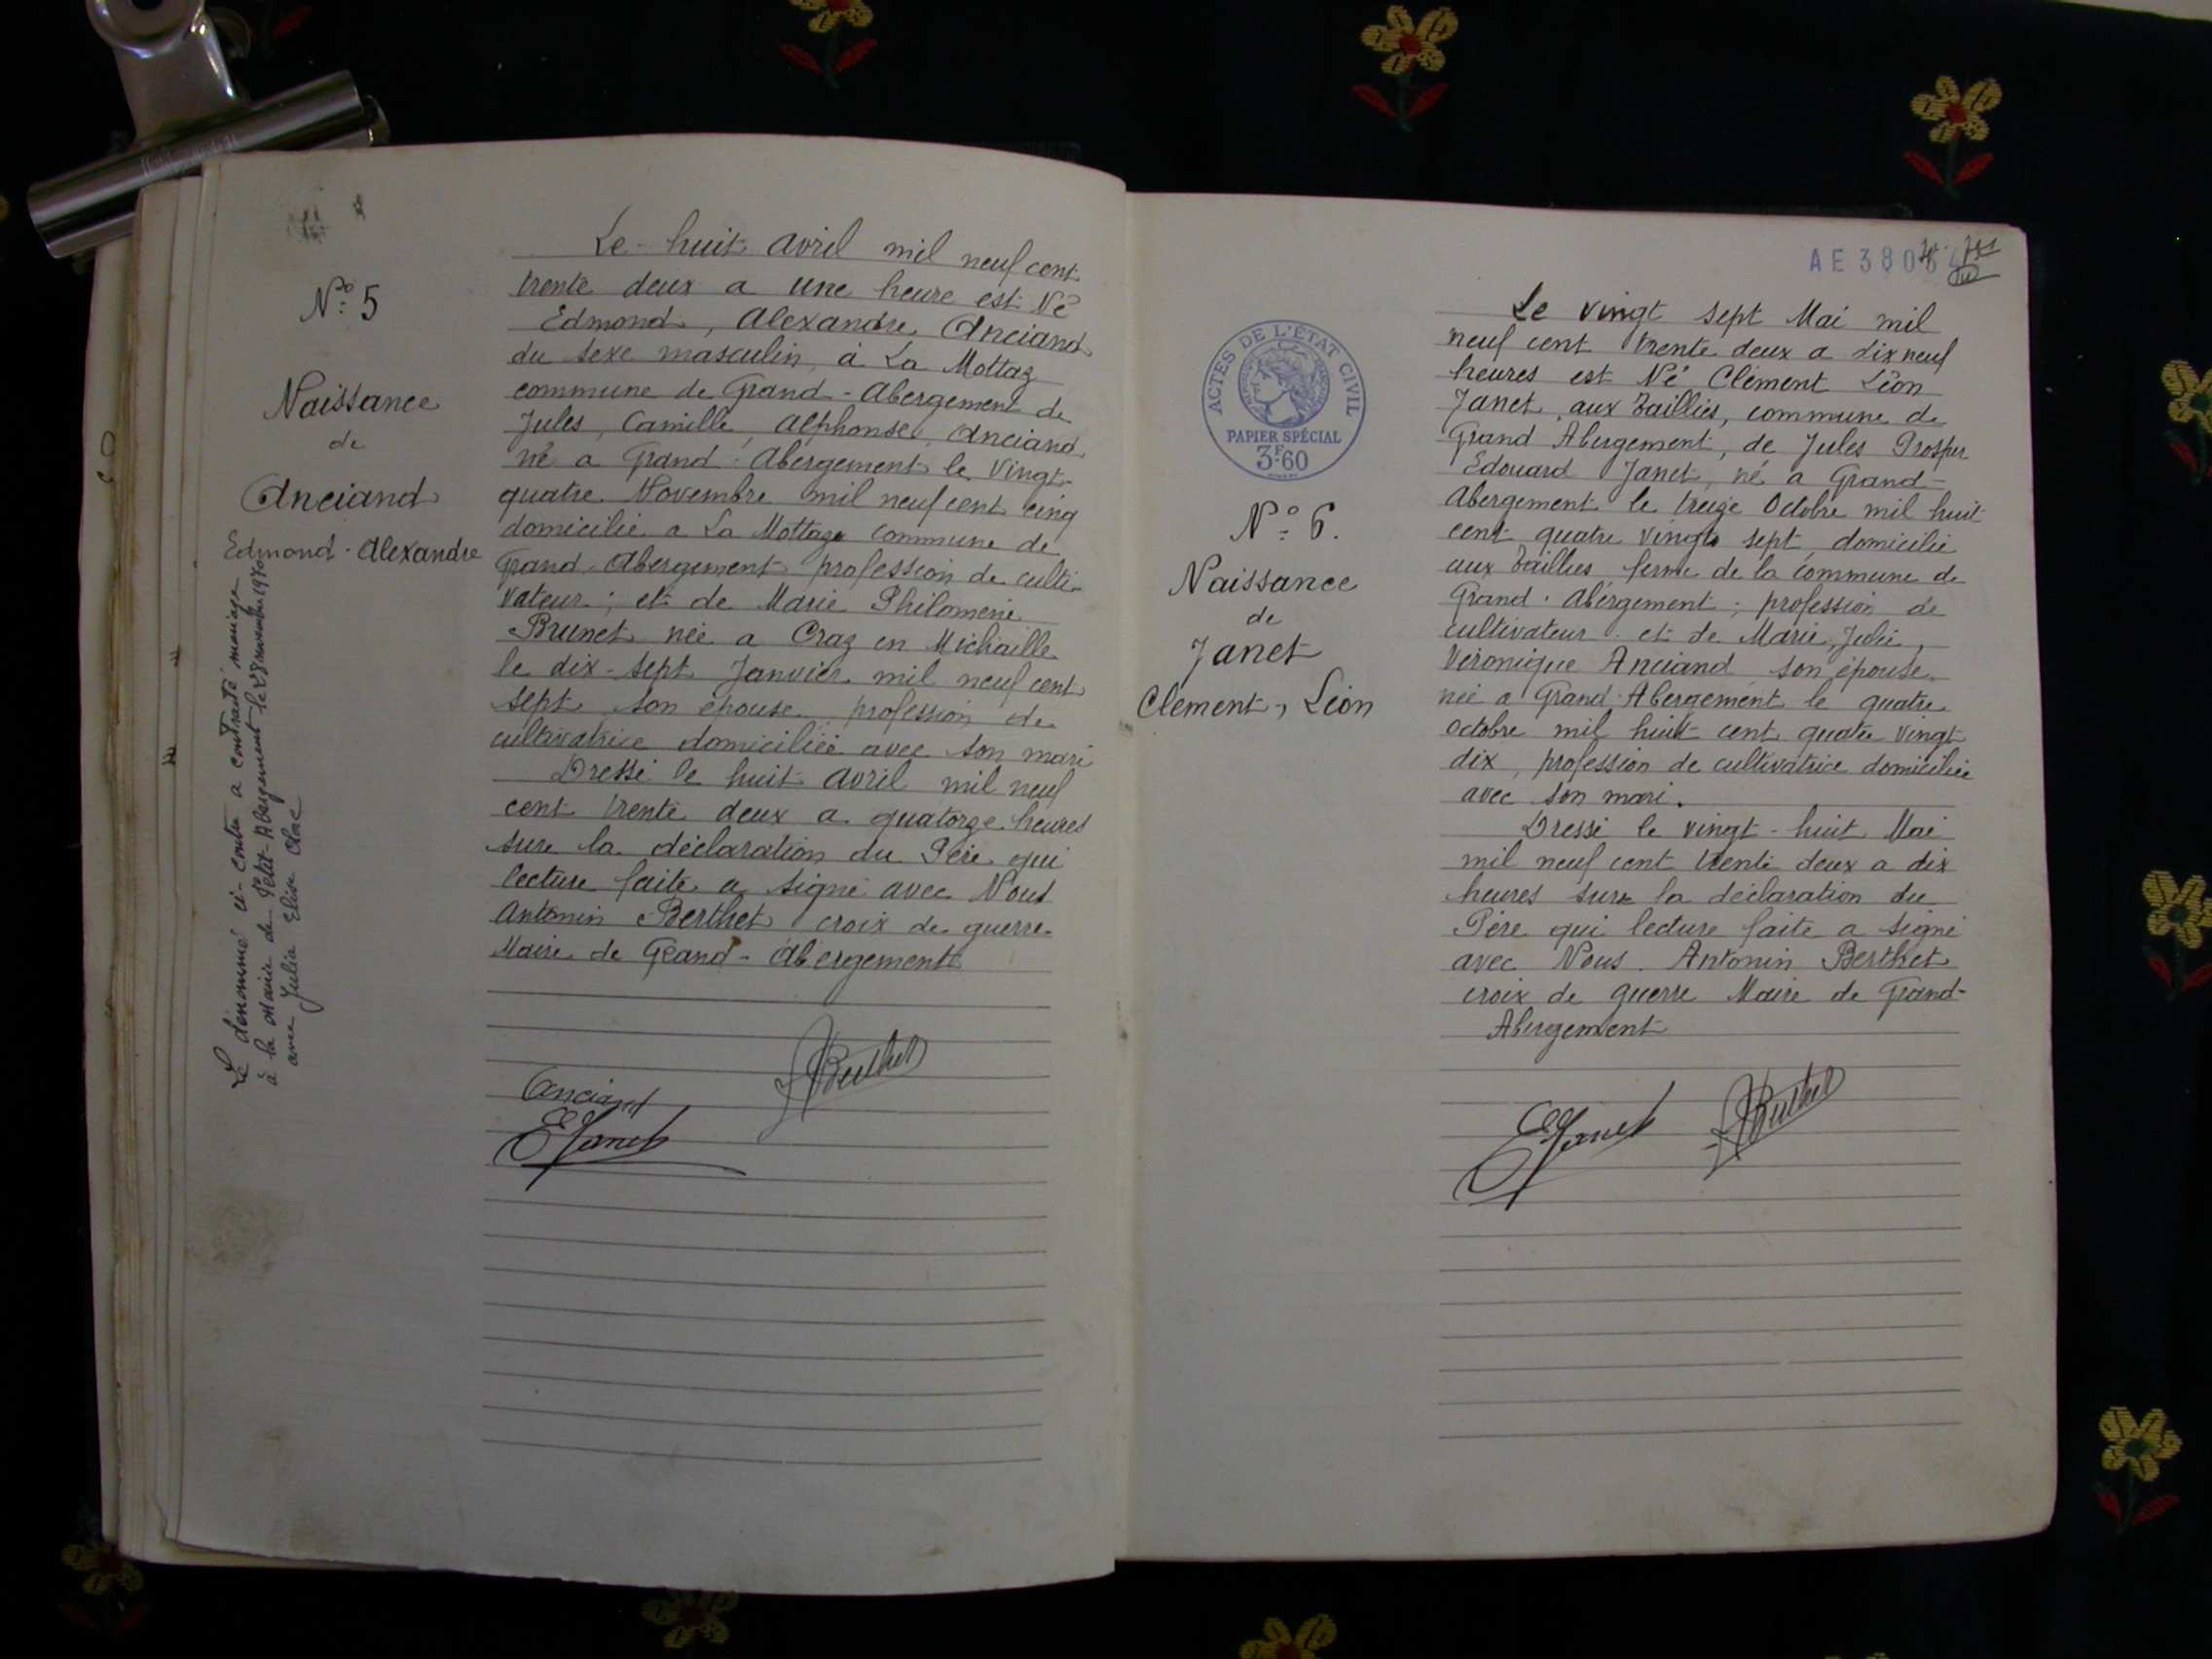 N° 5
Naissance
de
Anciand
Edmond - Alexandre
Le dénommé ci-contre a contracté mariage
à la Mairie de Petit-Abergement le 28 novembre 1970
avec Julia Elise
Le huit avril mil neuf cent
trente deux a une heure est Né
Edmond, Alexandre Anciand
du sexe masculin, à La Mottaz
commune de Grand-Abergement de
Jules, Camille, Alphonse, Anciand
né a Grand-Abergement le vingt-
quatre Novembre mil neuf cent cinq
domicilié a La Mottaz commune de
Grand-Abergement profession de culti-
vateur; et de Marie Philomène
Brunet née a Craz en Michaille
le dix-sept Janvier mil neuf cent
sept son épouse profession de
cultivatrice domiciliée avec son mari
Dressé le huit avril mil neuf
cent trente deux a quatorze heures
sure la déclaration du Père qui
lecture faite a signé avec Nous
Antonin Berthet croix de guerre
Maire de Grand-Abergement
Anciand
Berthet
EJanet
AE 380
ACTES DE L'ÉTAT CIVIL
PAPIER SPÉCIAL
3F60
N° 6.
Naissance
de
Janet
Clement, Léon
Le vingt sept Mai mil
neuf cent trente deux a dix neuf
heures est Né Clément Léon
Janet, aux Taillies, commune de
Grand Abergement, de Jules Prosper
Edouard Janet, né a Grand-
Abergement le treize Octobre mil huit
cent quatre vingts sept, domicilié
aux Taillies ferme de la commune de
Grand-Abergement; profession de
cultivateur et de Marie, Julie,
Véronique Anciand son épouse
née a Grand-Abergement le quatre
octobre mil huit cent quatre vingt
dix, profession de cultivatrice domiciliée
avec son mari.
Dressé le vingt-huit Mai
mil neuf cent trente deux a dix
heures sure la déclaration du
Père qui lecture faite a signé
avec Nous Antonin Berthet
croix de guerre Maire de Grand-
Abergement
EJanet
Berthet